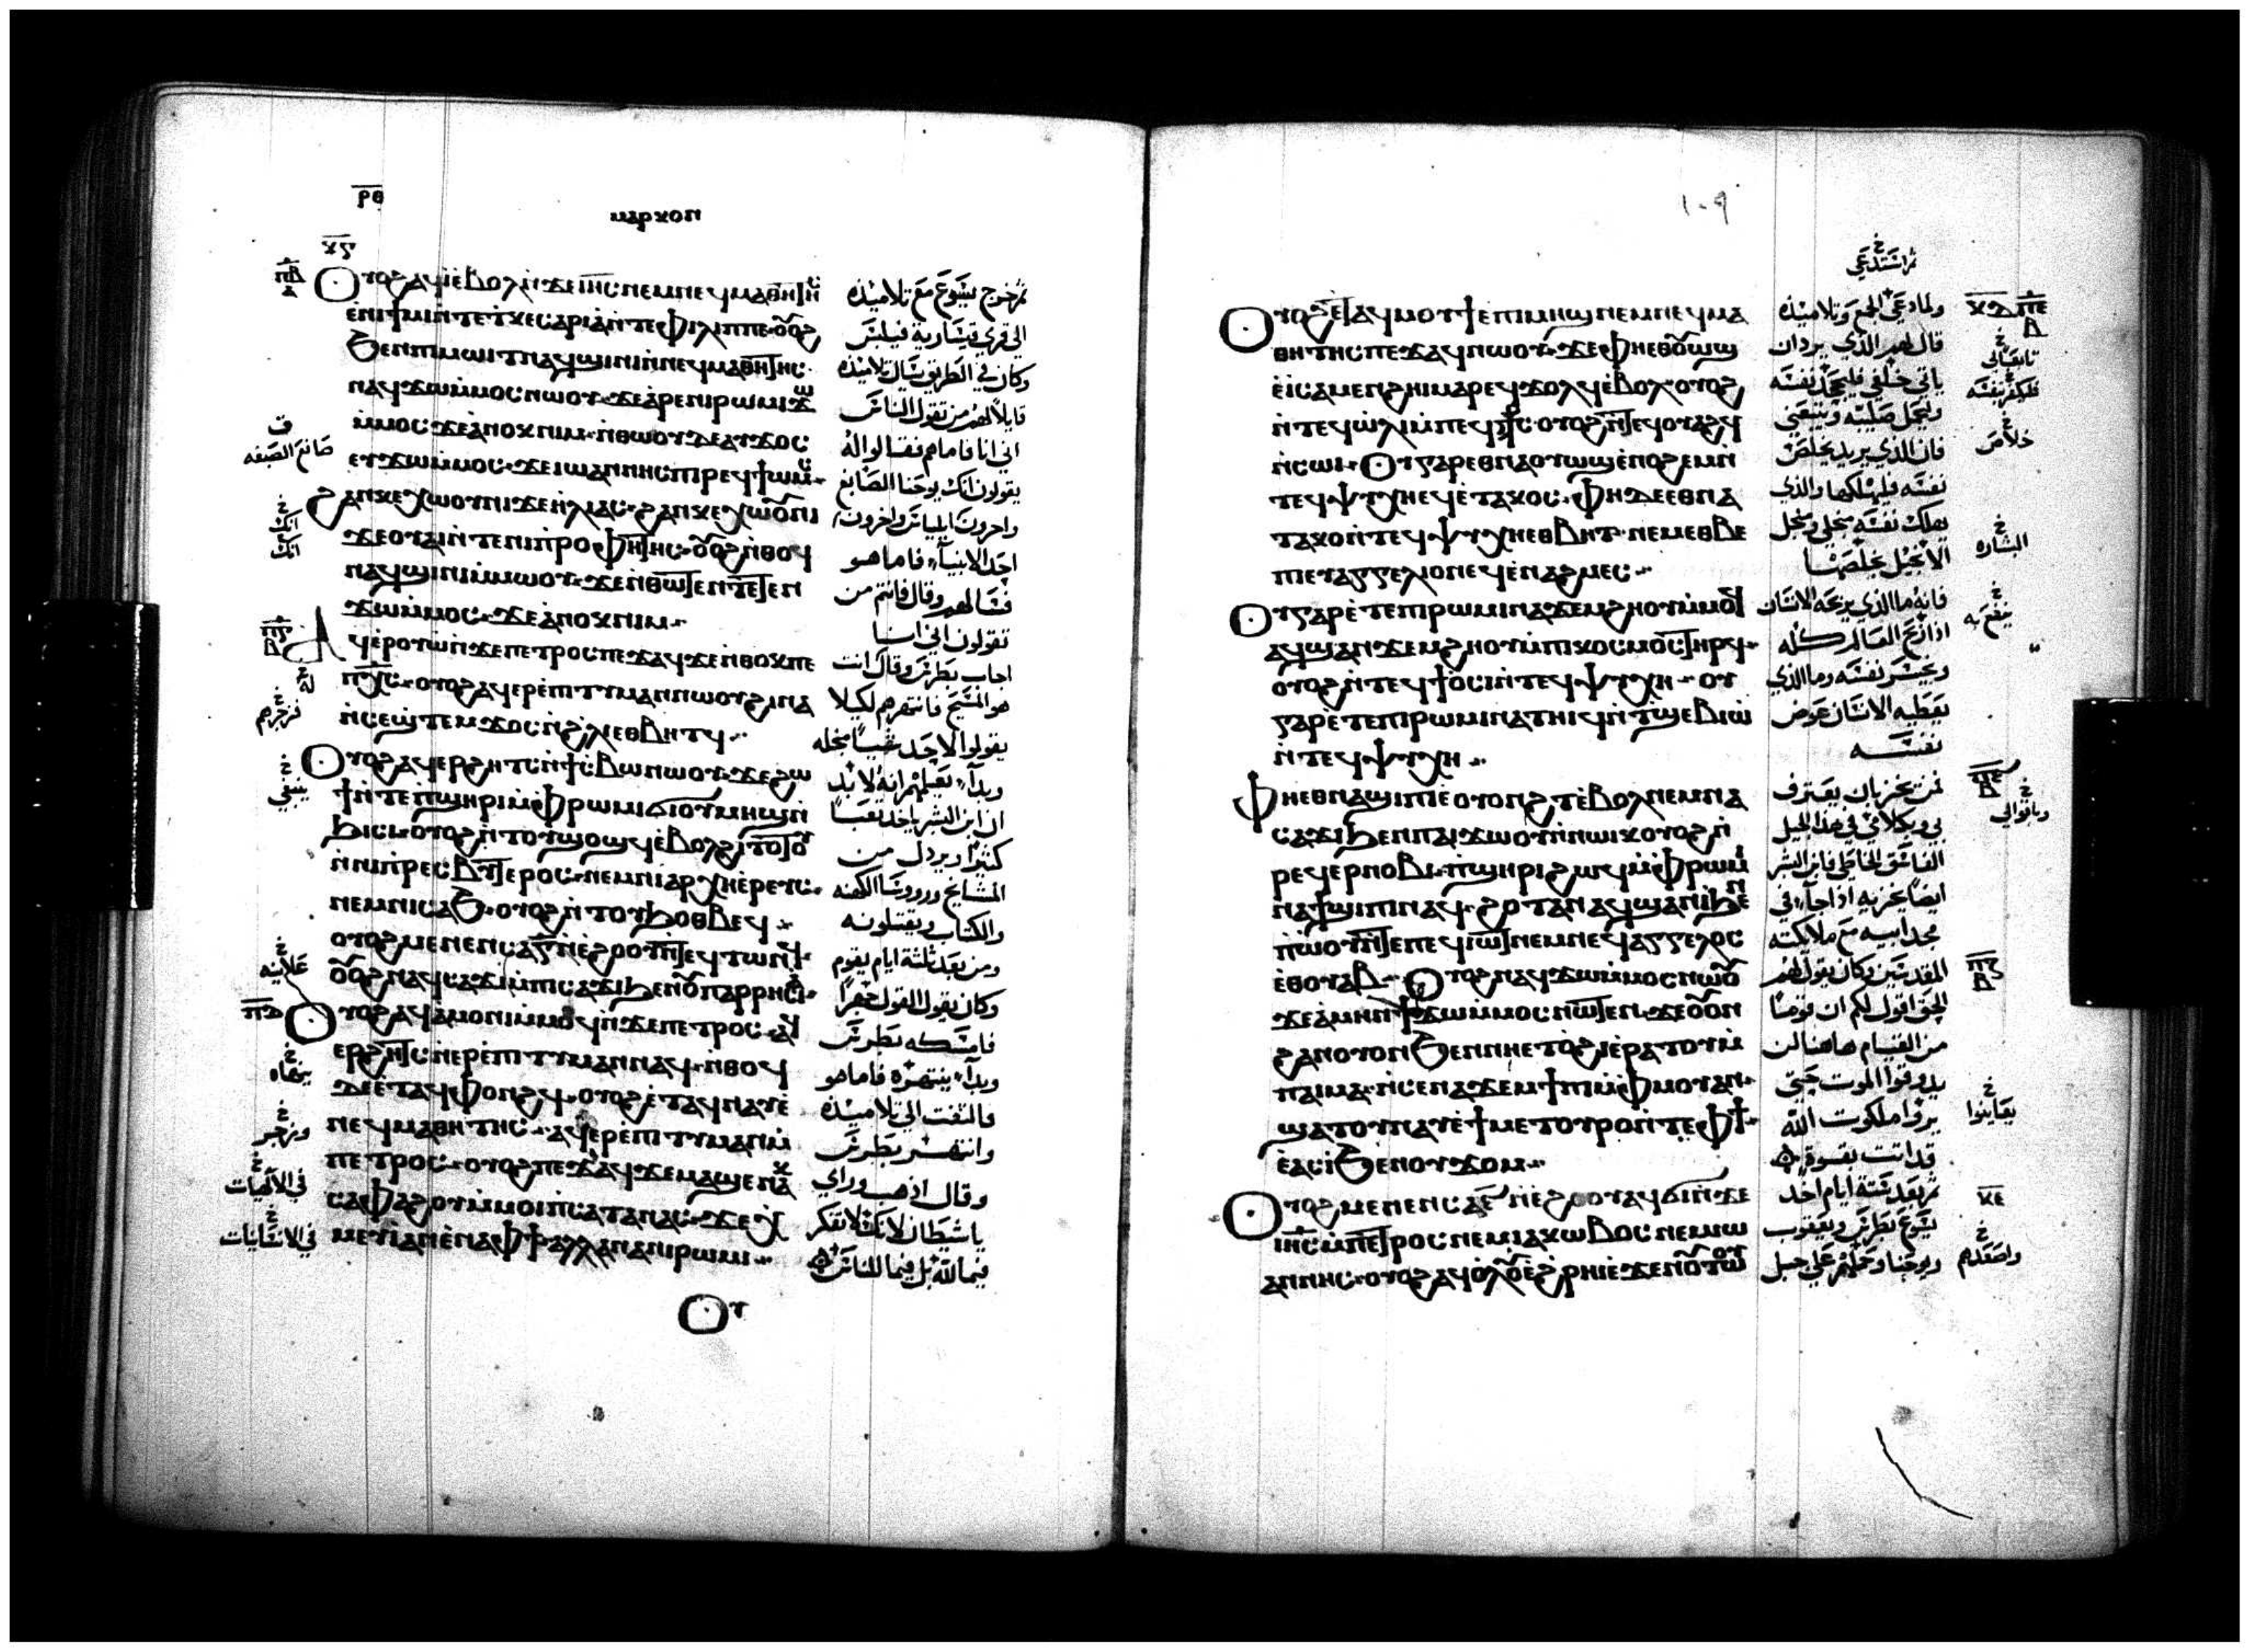 ⲣ̅ⲑ̅
ⲙⲁⲣⲕⲟⲛ
ⲕ̅ⲋ̅
ⲟⲩⲟϩ ⲁϥⲓ̀ⲉⲃⲟⲗ ⲛ̀ϫⲉ ⲓⲏ̅ⲥ̅ ⲛⲉⲙ ⲛⲉϥⲙⲁⲑⲏⲧⲏⲥ
ⲉ̀ⲛⲓϯⲙⲓ ⲛ̀ⲧⲉ ϯⲕⲉⲥⲁⲣⲓⲁ̀ ⲛ̀ⲧⲉ ⲫⲓⲗⲓⲡⲡⲉ ⲟⲩⲟϩ
ϧⲉⲛ ⲡⲓⲙⲱⲓⲧ ⲛⲁϥϣⲓⲛⲓ ⲛ̀ⲛⲉϥⲙⲁⲑⲏⲧⲏⲥ
ⲛⲁϥϫⲱ ⲙ̀ⲙⲟⲥ ⲛⲱⲟⲩ ϫⲉ ⲁ̀ⲣⲉ ⲛⲓⲣⲱⲙⲓ ϫⲱ
ⲙ̀ⲙⲟⲥ ϫⲉ ⲁ̀ⲛⲟⲕ ⲛⲓⲙ ⲛ̀ⲑⲱⲟⲩ ⲇⲉ ⲁⲩϫⲟⲥ
ⲉⲩϫⲱ ⲙ̀ⲙⲟⲥ ϫⲉ ⲓⲱⲁⲛⲛⲏⲥ ⲡⲓⲣⲉϥϯⲱⲙⲥ
ϩⲁⲛⲕⲉⲭⲱⲟⲩⲛⲓ ϫⲉ ⲏ̀ⲗⲓⲁⲥ ϩⲁⲛⲕⲉⲭⲱⲟⲩⲛⲓ
ϫⲉ ⲟⲩⲁⲓ ⲛ̀ⲧⲉ ⲛⲓⲡⲣⲟⲫⲏⲧⲏⲥ ⲟⲩⲟϩ ⲛ̀ⲑⲟϥ
ⲛⲁϥϣⲓⲛⲓ ⲙ̀ⲙⲱⲟⲩ ϫⲉ ⲛ̀ⲑⲱⲧⲉⲛ ⲧⲉⲧⲉⲛ
ϫⲱ ⲙ̀ⲙⲟⲥ ϫⲉ ⲁ̀ⲛⲟⲕ ⲛⲓⲙ
ⲁϥⲉⲣⲟⲩⲱ̀ ⲛ̀ϫⲉ ⲡⲉⲧⲣⲟⲥ ⲡⲉϫⲁϥ ϫⲉ ⲛ̀ⲑⲟⲕ ⲡⲉ
ⲡⲭ̅ⲥ̅ ⲟⲩⲟϩ ⲁϥⲉⲣⲉ̀ⲡⲓⲧⲩⲙⲁⲛ ⲛⲱⲟⲩ ϩⲓⲛⲁ
ⲛ̀ⲥⲉϣ̀ⲧⲉⲙϫⲟⲥ ⲛ̀ϩⲗⲓ ⲉⲑⲃⲏⲧϥ
ⲟⲩⲟϩ ⲁϥⲉⲣϩⲏⲧⲥ ⲛ̀ϯⲥⲃⲱ ⲛⲱⲟⲩ ϫⲉ ϩⲱ
ϯ ⲛ̀ⲧⲉ ⲡϣⲏⲣⲓ ⲙ̀ⲫⲣⲱⲙⲓ ϭⲓ ⲟⲩⲙⲏϣ ⲛ̀
ϧⲓⲥⲓ ⲟⲩⲟϩ ⲛ̀ⲧⲟⲩϣⲟϣϥ ⲉ̀ⲃⲟⲗϩⲓⲧⲟⲧⲟⲩ
ⲛ̀ⲛⲓⲡⲣⲉⲥⲃⲩⲧⲉⲣⲟⲥ ⲛⲉⲙ ⲛⲓⲁⲣⲭⲏⲉ̀ⲣⲉⲩⲥ
ⲛⲉⲙ ⲛⲓⲥⲁϧ ⲟⲩⲟϩ ⲛ̀ⲧⲟⲩϧⲟⲑⲃⲉϥ
ⲟⲩⲟϩ ⲙⲉⲛⲉⲛⲥⲁ ⲅ̅ ⲛ̀ⲉ̀ϩⲟⲟⲩ ⲛ̀ⲧⲉϥⲧⲱⲛϥ
ⲟⲩⲟϩ ⲛⲁϥⲥⲁϫⲓ ⲙ̀ⲡⲓⲥⲁϫⲓ ϧⲉⲛ ⲟⲩⲡⲁⲣⲣⲏⲥⲓⲁ
ⲟⲩⲟϩ ⲁϥⲁⲙⲟⲛⲓ ⲙ̀ⲙⲟϥ ⲛ̀ϫⲉ ⲡⲉⲧⲣⲟⲥ ⲁϥ
ⲉⲣϩⲏⲧⲥ ⲛ̀ⲉⲣⲉ̀ⲡⲓⲧⲩⲙⲁⲛ ⲛⲁϥ ⲛ̀ⲑⲟϥ
ⲇⲉ ⲉ̀ⲧⲁϥⲫⲟⲛϩϥ ⲟⲩⲟϩ ⲉ̀ⲧⲁϥⲛⲁⲩ ⲉ̀
ⲛⲉϥⲙⲁⲑⲏⲧⲏⲥ ⲁϥⲉⲣⲉ̀ⲡⲓⲧⲩⲙⲁⲛ ⲙ̀
ⲡⲉⲧⲣⲟⲥ ⲟⲩⲟϩ ⲡⲉϫⲁϥ ϫⲉ ⲙⲁϣⲉ ⲛⲁⲕ
ⲥⲁⲫⲁϩⲟⲩ ⲙ̀ⲙⲟⲓ ⲡ̀ⲥⲁⲧⲁⲛⲁⲥ ϫⲉ ⲭ
ⲙⲉⲩⲓ̀ ⲁⲛ ⲉ̀ⲛⲁⲫϯ ⲁⲗⲗⲁ ⲛⲁⲛⲓⲣⲱⲙⲓ
ⲟⲩ
ثم خرج يسوع مع تلاميذه
الى قرى قيسارية فيلبس
وكان في الطريق يسال تلاميذه
قايلا لهم من تقول الناس
اني انا فاما هم فقالوا له
يقولون انك يوحنا الصابغ
واخرون ايلياس واخرون
احد الانبياء فاما هو
فسالهم وقال فانتم من
تقولون اني انا
اجاب بطرس وقال انت
هو المسيح فانتهرهم لكيلا
يقولوا لاحد شيا من اجله
وبدا يعلمهم انه لا بد
ان ابن البشر ياخذ تعبا
كثيرا ويرذل من
المشايخ وروسا الكهنه
والكتاب ويقتلونه
ومن بعد ثلثة ايام يقوم
وكان يقول القول جهرا
فامسكه بطرس
وبدا ينتهره فاما هو
فالتفت الى تلاميذه
وانتهر بطرس
وقال اذهب وراي
يا شيطان لانك لا تفكر
فيما لله بل فيما للناس
صانع الصبغه
انك
انك
له
فزجرهم
ينبغي
علانيه
ينهاه
وزجر
في الالهيات
في الانسانيات
١٠٩
ثم استدعى
ⲟⲩⲟϩ ⲉ̀ⲧⲁϥⲙⲟⲩϯ ⲉⲡⲓⲙⲏϣ ⲛⲉⲙ ⲛⲉϥⲙⲁ
ⲑⲏⲧⲏⲥ ⲡⲉϫⲁϥ ⲛⲱⲟⲩ ϫⲉ ⲫⲏⲉⲑⲟⲩⲱϣ
ⲉ̀ⲓ̀ ⲥⲁⲙⲉⲛϩⲏⲓ ⲙⲁⲣⲉϥϫⲟⲗϥ ⲉ̀ⲃⲟⲗ ⲟⲩⲟϩ
ⲛ̀ⲧⲉϥⲱ̀ⲗⲓ ⲙ̀ⲡⲉϥⲥ̅ⲧ̅ⲥ̅ ⲟⲩⲟϩ ⲛ̀ⲧⲉϥⲟⲩⲁϩϥ
ⲛ̀ⲥⲱⲓ ⲟⲩ ⲅⲁⲣ ⲉⲑⲛⲁⲟⲩⲱϣ ⲉ̀ⲛⲟϩⲉⲙ ⲛ̀
ⲧⲉϥⲯⲩⲭⲏ ⲉϥⲉ̀ⲧⲁⲕⲟⲥ ⲫⲏ ⲇⲉ ⲉⲑⲛⲁ
ⲧⲁⲕⲟ ⲛ̀ⲧⲉϥⲯⲩⲭⲏ ⲉⲑⲃⲏⲧ ⲛⲉⲙ ⲉⲑⲃⲉ
ⲡⲓⲉⲩⲁⲅⲅⲉⲗⲓⲟⲛ ⲉϥⲉ̀ⲛⲁϩⲙⲉⲥ
ⲟⲩ ⲅⲁⲣ ⲉ̀ⲧⲉ ⲡⲓⲣⲱⲙⲓ ⲛⲁϫⲉⲙϩⲏⲟⲩ ⲙ̀ⲙⲟϥ
ⲁϥϣⲁⲛϫⲉⲙϩⲏⲟⲩ ⲙ̀ⲡⲓⲕⲟⲥⲙⲟⲥ ⲧⲏⲣϥ
ⲟⲩⲟϩ ⲛ̀ⲧⲉϥϯⲟⲥⲓ ⲛ̀ⲧⲉϥⲯⲩⲭⲏ ⲟⲩ
ⲅⲁⲣ ⲉ̀ⲧⲉ ⲡⲓⲣⲱⲙⲓ ⲛⲁⲧⲏⲓϥ ⲛ̀ⲧϣⲉⲃⲓⲱ̀
ⲛ̀ⲧⲉϥⲯⲩⲭⲏ
ⲫⲏⲉⲑⲛⲁϣⲓⲡⲓ ⲉ̀ⲟⲩⲟⲛϩⲧ ⲉ̀ⲃⲟⲗ ⲛⲉⲙ ⲛⲁ
ⲥⲁϫⲓ ϧⲉⲛ ⲡⲁⲓϫⲱⲟⲩ ⲛ̀ⲛⲱⲓⲕ ⲟⲩⲟϩ ⲛ̀
ⲣⲉϥⲉⲣⲛⲟⲃⲓ ⲡϣⲏⲣⲓ ϩⲱϥ ⲙ̀ⲫⲣⲱⲙⲓ
ⲛⲁϯϣⲓⲡⲓ ⲛⲁϥ ϩⲟⲧⲁⲛ ⲁϥϣⲁⲛⲓ̀ ϧⲉⲛ
ⲡⲱ̀ⲟⲩ ⲛ̀ⲧⲉ ⲡⲉϥⲓⲱⲧ ⲛⲉⲙ ⲛⲉϥⲁⲅⲅⲉⲗⲟⲥ
ⲉ̀ⲑⲟⲩⲁⲃ ⲟⲩⲟϩ ⲛⲁϥϫⲱ ⲙ̀ⲙⲟⲥ ⲛⲱⲟⲩ
ϫⲉ ⲁ̀ⲙⲏⲛ ϯϫⲱ ⲙ̀ⲙⲟⲥ ⲛⲱⲧⲉⲛ ϫⲉ ⲟⲩⲟⲛ
ϩⲁⲛⲟⲩⲟⲛ ϧⲉⲛ ⲛⲏⲉⲧⲟ̀ϩⲓ ⲉ̀ⲣⲁⲧⲟⲩ ⲙ̀
ⲡⲁⲓⲙⲁ ⲛ̀ⲥⲉⲛⲁϫⲉⲙϯⲡⲓ ⲙ̀ⲫⲙⲟⲩ ⲁⲛ
ϣⲁⲧⲟⲩⲛⲁⲩ ⲉ̀ϯⲙⲉⲧⲟⲩⲣⲟ ⲛ̀ⲧⲉ ⲫϯ
ⲉ̀ⲁⲥⲓ̀ ϧⲉⲛ ⲟⲩϫⲟⲙ
ⲟⲩⲟϩ ⲙⲉⲛⲉⲛⲥⲁ ⲋ̅ ⲛ̀ⲉ̀ϩⲟⲟⲩ ⲁϥϭⲓ ⲛ̀ϫⲉ
ⲓⲏ̅ⲥ̅ ⲙ̀ⲡⲉⲧⲣⲟⲥ ⲛⲉⲙ ⲓⲁⲕⲱⲃⲟⲥ ⲛⲉⲙ ⲓⲱ
ⲁⲛⲛⲏⲥ ⲟⲩⲟϩ ⲁϥⲟ̀ⲗⲟⲩ ⲉ̀ϩⲣⲏⲓ ⲉ̀ϫⲉⲛ ⲟⲩⲧⲱⲟⲩ
ولما دعى الجمع وتلاميذه
قال لهم الذي يريد ان
ياتي خلفي فليجحد نفسه
وليحمل صليبه ويتبعني
فان الذي يريد يخلص
نفسه فليهلكها والذي
يهلك نفسه من اجلي ومن اجل
الانجيل يخلصها
فانه ما الذي يربحه الانسان
اذا ربح العالم كله
ويخسر نفسه وما الذي
يعطيه الانسان عوض
نفسه
فمن يخزى بان يعترف
بي وبكلامي في هذا الجيل
الفاسق الخاطي فابن البشر
ايضا يخزيه اذا جاء في
مجد ابيه مع ملايكته
المقدسين وكان يقول لهم
الحق اقول لكم ان قوما
من القيام هاهنا لن
يذوقوا الموت حتى
يروا ملكوت الله
قد اتت بقوة
ثم بعد ستة ايام اخذ
يسوع بطرس ويعقوب
ويوحنا وحملهم على جبل
فليكفر بنفسه
خلاص
البشاره
ينفع به
وباقوالي
يعاينوا
ⲕ̅ⲉ̅
واصعدهم